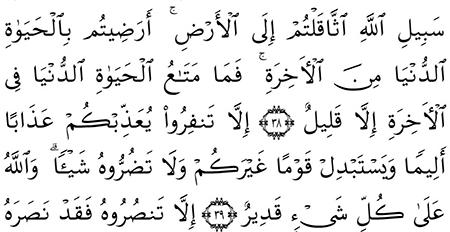 سَبِيلِ ٱللَّهِ ٱثَّاقَلۡتُمۡ إِلَى ٱلۡأَرۡضِۚ أَرَضِيتُم بِٱلۡحَيَوٰةِ
ٱلدُّنۡيَا مِنَ ٱلۡأٓخِرَةِۚ فَمَا مَتَٰعُ ٱلۡحَيَوٰةِ ٱلدُّنۡيَا فِي
ٱلۡأٓخِرَةِ إِلَّا قَلِيلٌ ٣٨ إِلَّا تَنفِرُواْ يُعَذِّبۡكُمۡ عَذَابًا
أَلِيمٗا وَيَسۡتَبۡدِلۡ قَوۡمًا غَيۡرَكُمۡ وَلَا تَضُرُّوهُ شَيۡـٔٗاۗ وَٱللَّهُ
عَلَىٰ كُلِّ شَيۡءٖ قَدِيرٌ ٣٩ إِلَّا تَنصُرُوهُ فَقَدۡ نَصَرَهُ